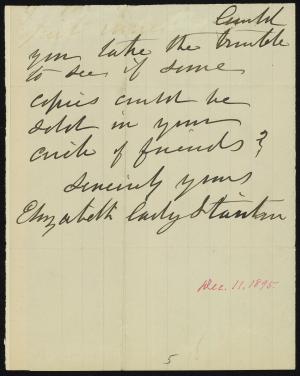 Could
you take the trouble
to see if some
copies could be
sold in your
circle of friends?
Sincerely yours
Elizabeth Cady Stanton
Dec. 11, 1895.
5